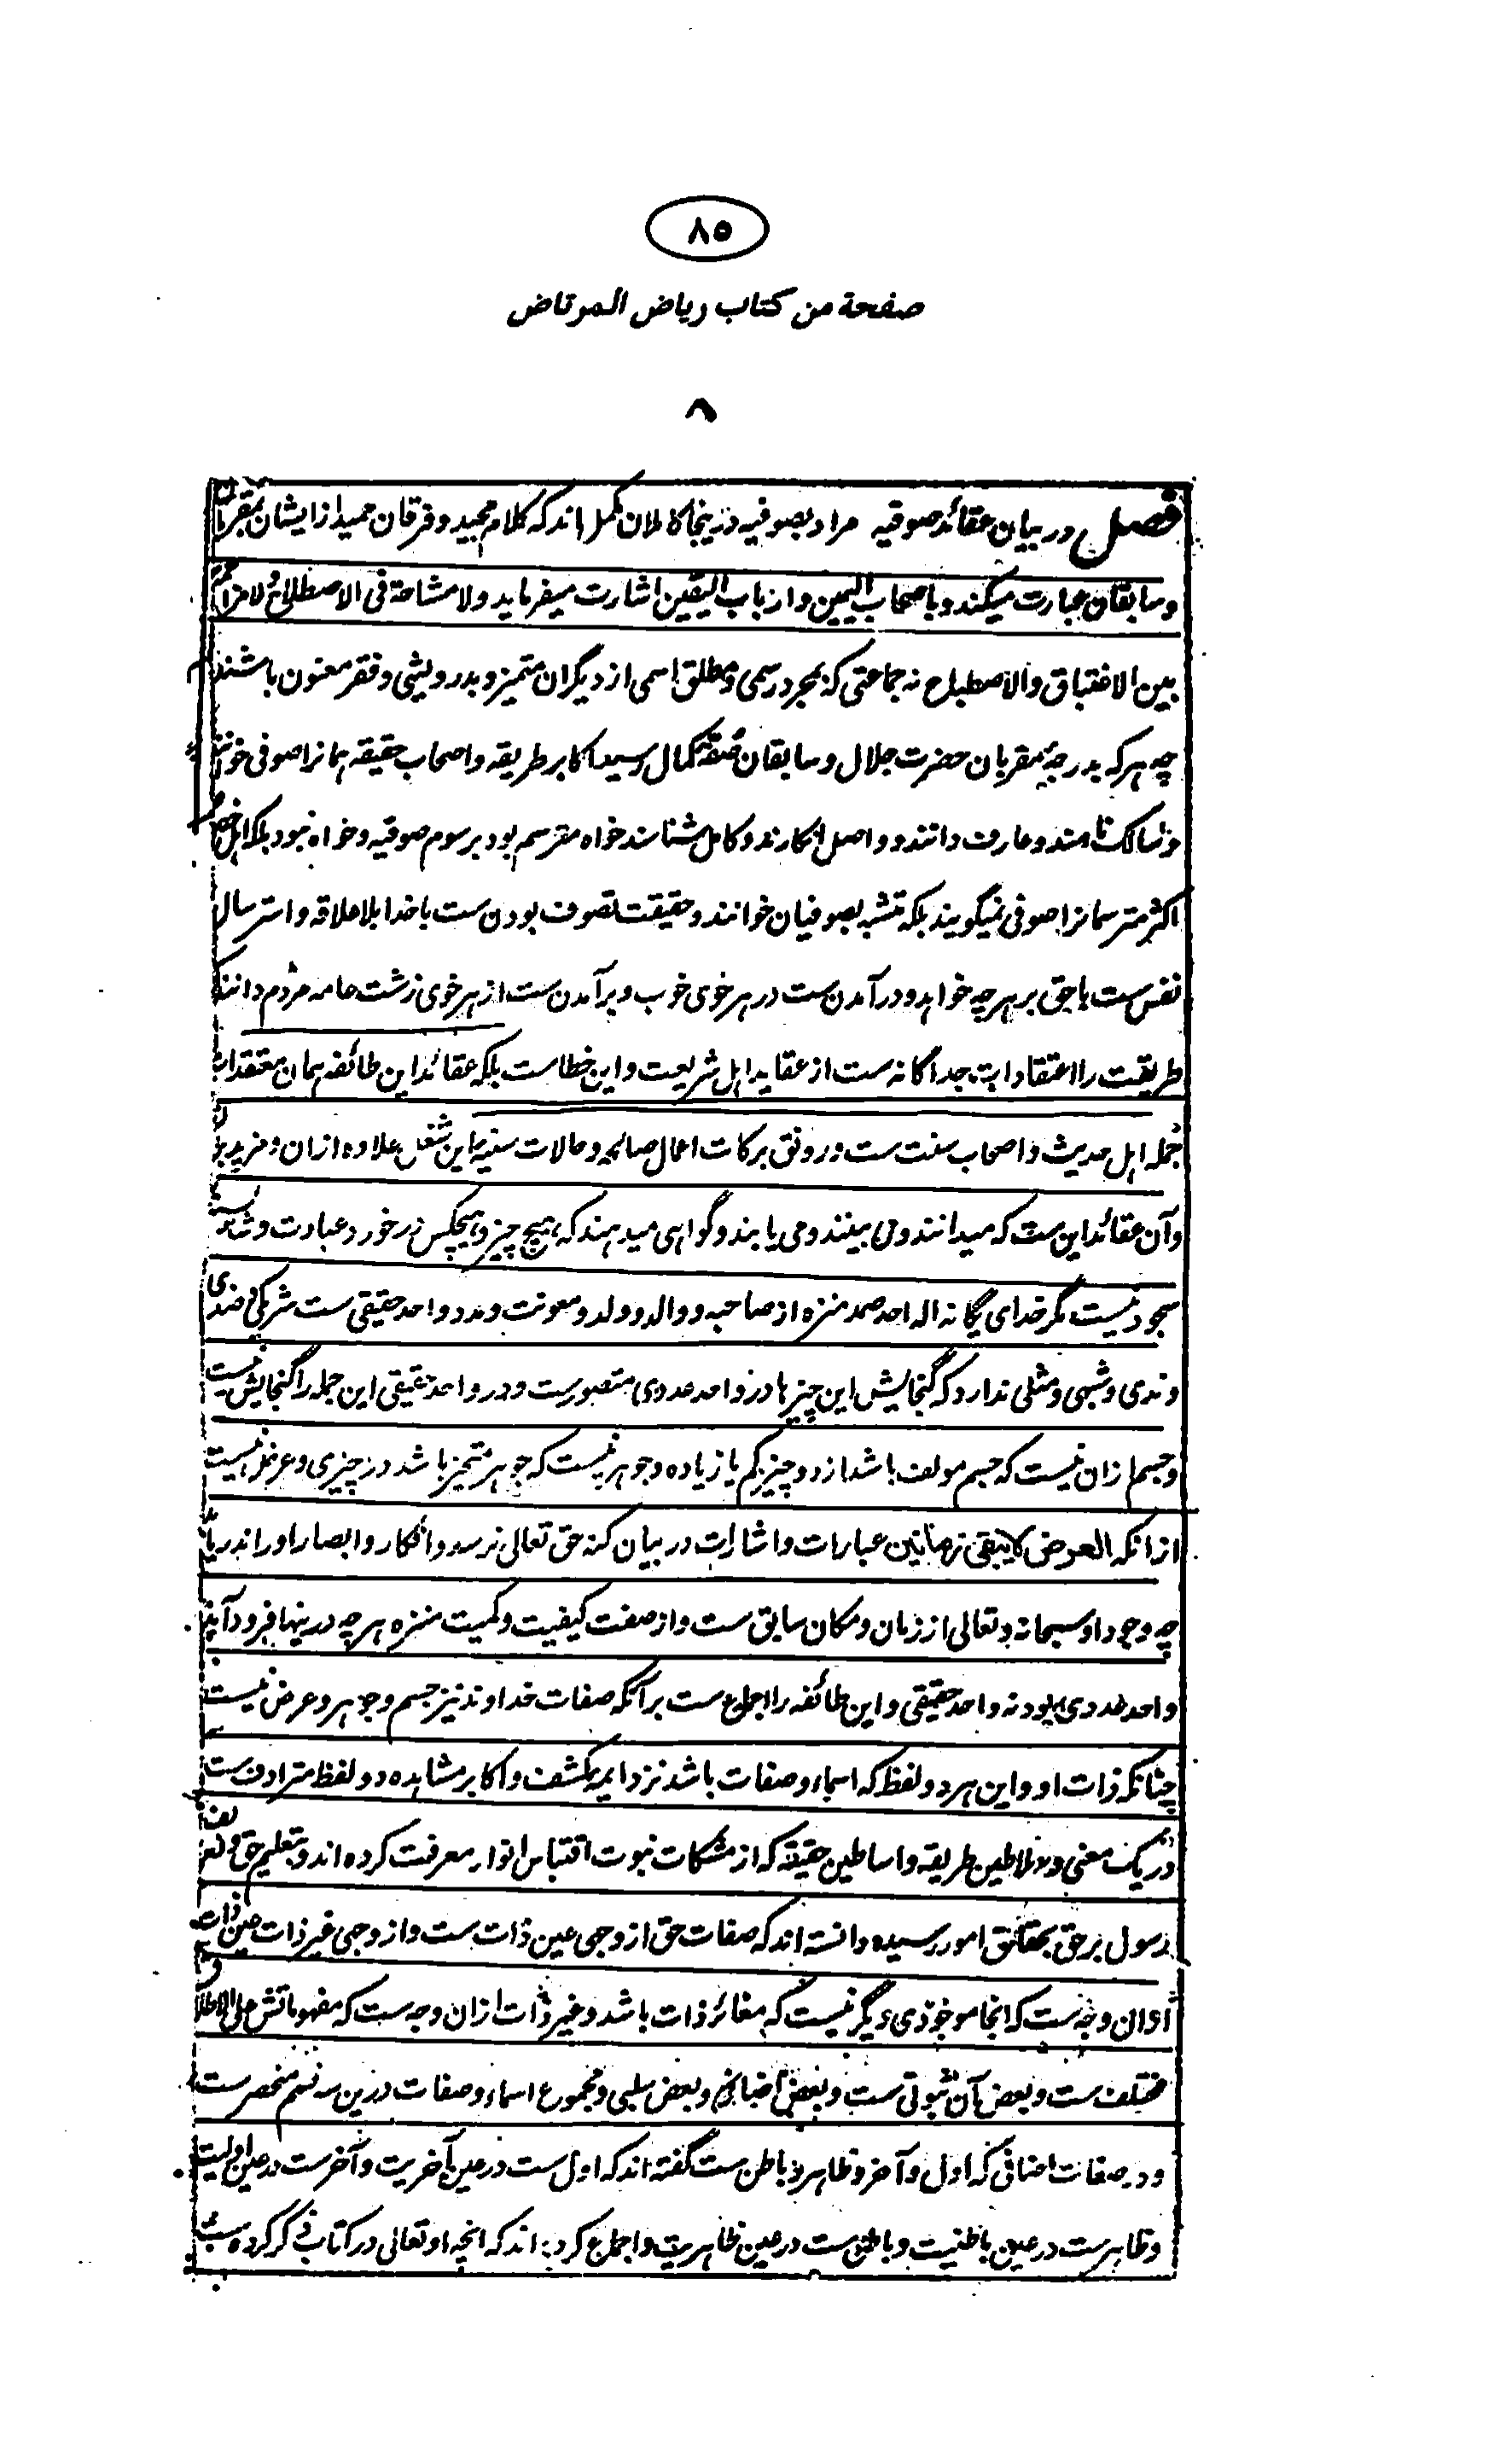 ٨٥
صفحة من كتاب رياض المرتاض
٨
فصل در بيان عقائد صوفيه مراد بصوفيه درينجا كاملان مكمل اند كه كلام مجيد و فرقان حميد از ايشان بمقربان
و سابقان عبارت ميكند و باصحاب اليمين و ارباب اليقين اشارت ميفرمايد ولا مشاحة فى الاصطلاح ولا
بين الاغتباق والاصطباح نه جماعتى كه بمجرد رسمى و مطلق اسمى از ديگران متميز و بدرويشى و فقر معنون باشند
چه هر كه بدرجهٔ مقربان حضرت جلال و سابقان صفهٔ كمال رسيد اكابر طريقه و اصحاب حقيقه همانرا صوفى خوانند
و سالك نامند و عارف دانند و واصل انگارند و كامل شناسند خواه مترسم بود برسوم صوفيه و خواه نبود بلكه
اكثر مترسمانرا صوفى نميگويند بلكه متشبه بصوفيان خوانند و حقيقت تصوف بودن ست با خدا بلا علاقه و استرسال
نفس ست با حق بر هر چه خواهد و در آمدن ست در هر خوى خوب و بر آمدن ست از هر خوى زشت عامه مردم دانند كه
طريقت را اعتقادات جداگانه ست از عقايد اهل شريعت و اين خطاست بلكه عقائد اين طائفه همان معتقدات
جمله اهل حديث و اصحاب سنت ست و رونق بركات اعمال صالحه و حالات سنيه اين شغل علاوه ازان و مزيد بر
وآن عقائد اين ست كه ميدانند و مى بينند و مى يابند و گواهى ميدهند كه هيچ چيز و هيچكس در خورد عبادت و شايسته
سجود نيست مگر خداى يگانه اله احد صمد منزه از صاحبه و والد و ولد و معونت و مدد و احد حقيقى ست شريكى و ضدى
و ندى و شبهى و مثلى ندارد كه گنجايش اين چيزها در واحد عددى متصورست و در واحد حقيقى اين جمله را گنجايش نيست
و جسم ازان نيست كه جسم مولف باشد از دو چيز كم يا زياده و جوهر نيست كه جوهر متحيز باشد در چيزى و عرض نيست
ازانكه العرض لا يبقى زمانين عبارات و اشارات در بيان كنه حق تعالى نرسد و افكار و ابصار او را اندر يابد
چه وجود او سبحانه و تعالى از زمان و مكان سابق ست و از صفت كيفيت و كميت منزه هر چه درينها فرود آيد
واحد عددى بود نه واحد حقيقى و اين طائفه را اجماع ست برآنكه صفات خداوند نيز جسم و جوهر و عرض نيست
چنانكه ذات او و اين هر دو لفظ كه اسماء و صفات باشد نزد ايمهٔ كشف و اكابر مشاهده دو لفظ مترادف ست
در يك معنى و سلاطين طريقه و اساطين حقيقه كه از مشكات نبوت اقتباس انوار معرفت كرده اند و بتعليم حق و
رسول بر حق بحقائق امور رسيده دانسته اند كه صفات حق از وجهى عين ذات ست و از وجهى غير ذات عين ذات
ازان وجه ست كه آنجا موجودى ديگر نيست كه مغائر ذات باشد و غير ذات ازان وجه ست كه مفهوماتش على الاطلاق
مختلف ست و بعض آن ثبوتى ست و بعض اضافى و بعض سلبى و مجموع اسماء و صفات درين سه قسم منحصر ست
و در صفات اضافى كه اول و آخر و ظاهر و باطن ست گفته اند كه اول ست در عين آخريت و آخر ست در عين اوليت
و ظاهر ست در عين باطنيت و باطن ست در عين ظاهريت و اجماع كرده اند كه انچه او تعالى در كتاب ذكر كرده ست